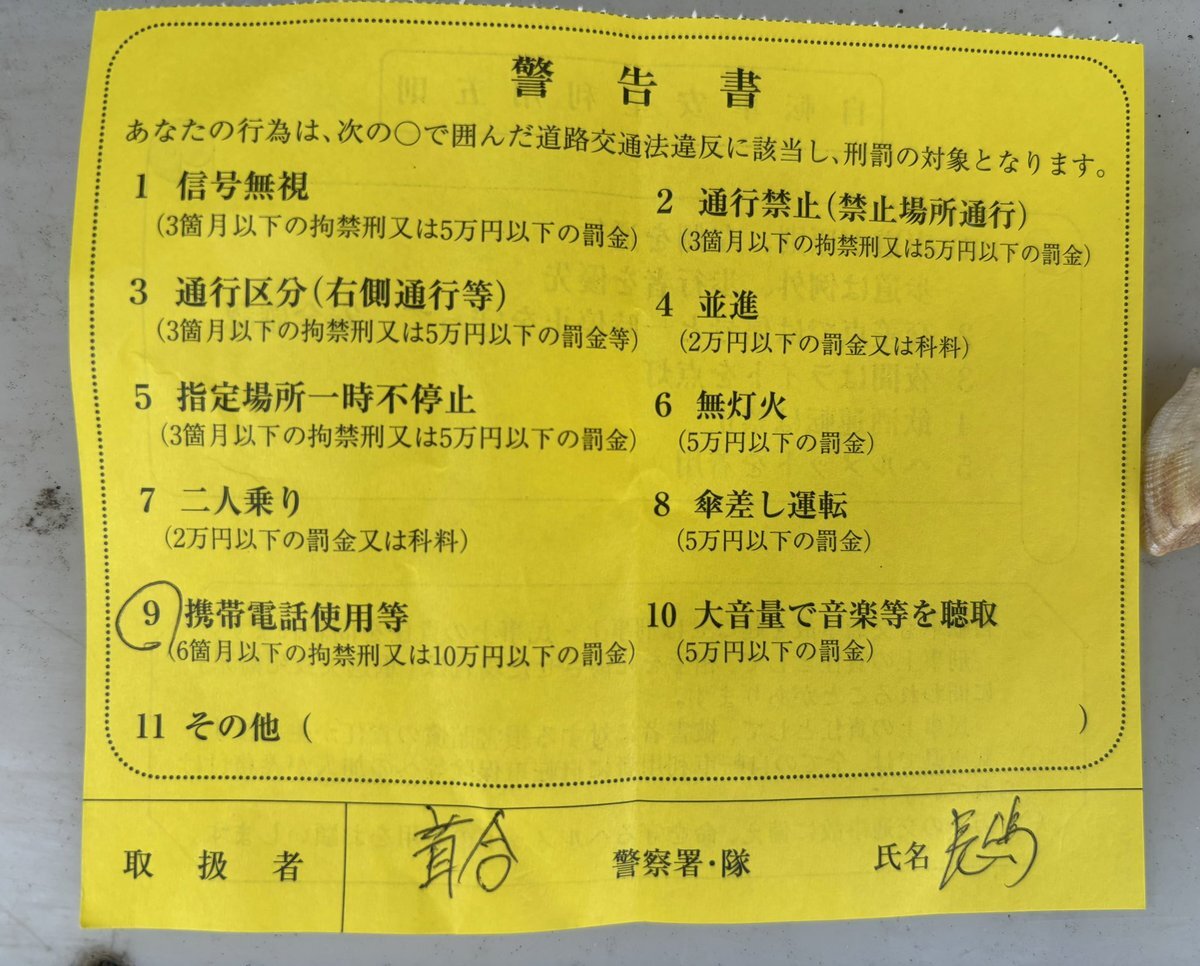 警告書
あなたの行為は、次の○で囲んだ道路交通法違反に該当し、刑罰の対象となります。
1 信号無視
(3箇月以下の拘禁刑又は5万円以下の罰金)
2 通行禁止(禁止場所通行)
(3箇月以下の拘禁刑又は5万円以下の罰金)
3 通行区分(右側通行等)
(3箇月以下の拘禁刑又は5万円以下の罰金等)
4 並進
(2万円以下の罰金又は科料)
5 指定場所一時不停止
(3箇月以下の拘禁刑又は5万円以下の罰金)
6 無灯火
(5万円以下の罰金)
7 二人乗り
(2万円以下の罰金又は科料)
8 傘差し運転
(5万円以下の罰金)
9 携帯電話使用等
(6箇月以下の拘禁刑又は10万円以下の罰金)
10 大音量で音楽等を聴取
(5万円以下の罰金)
11 その他 ( )
取扱者 葺合 警察署・隊 氏名